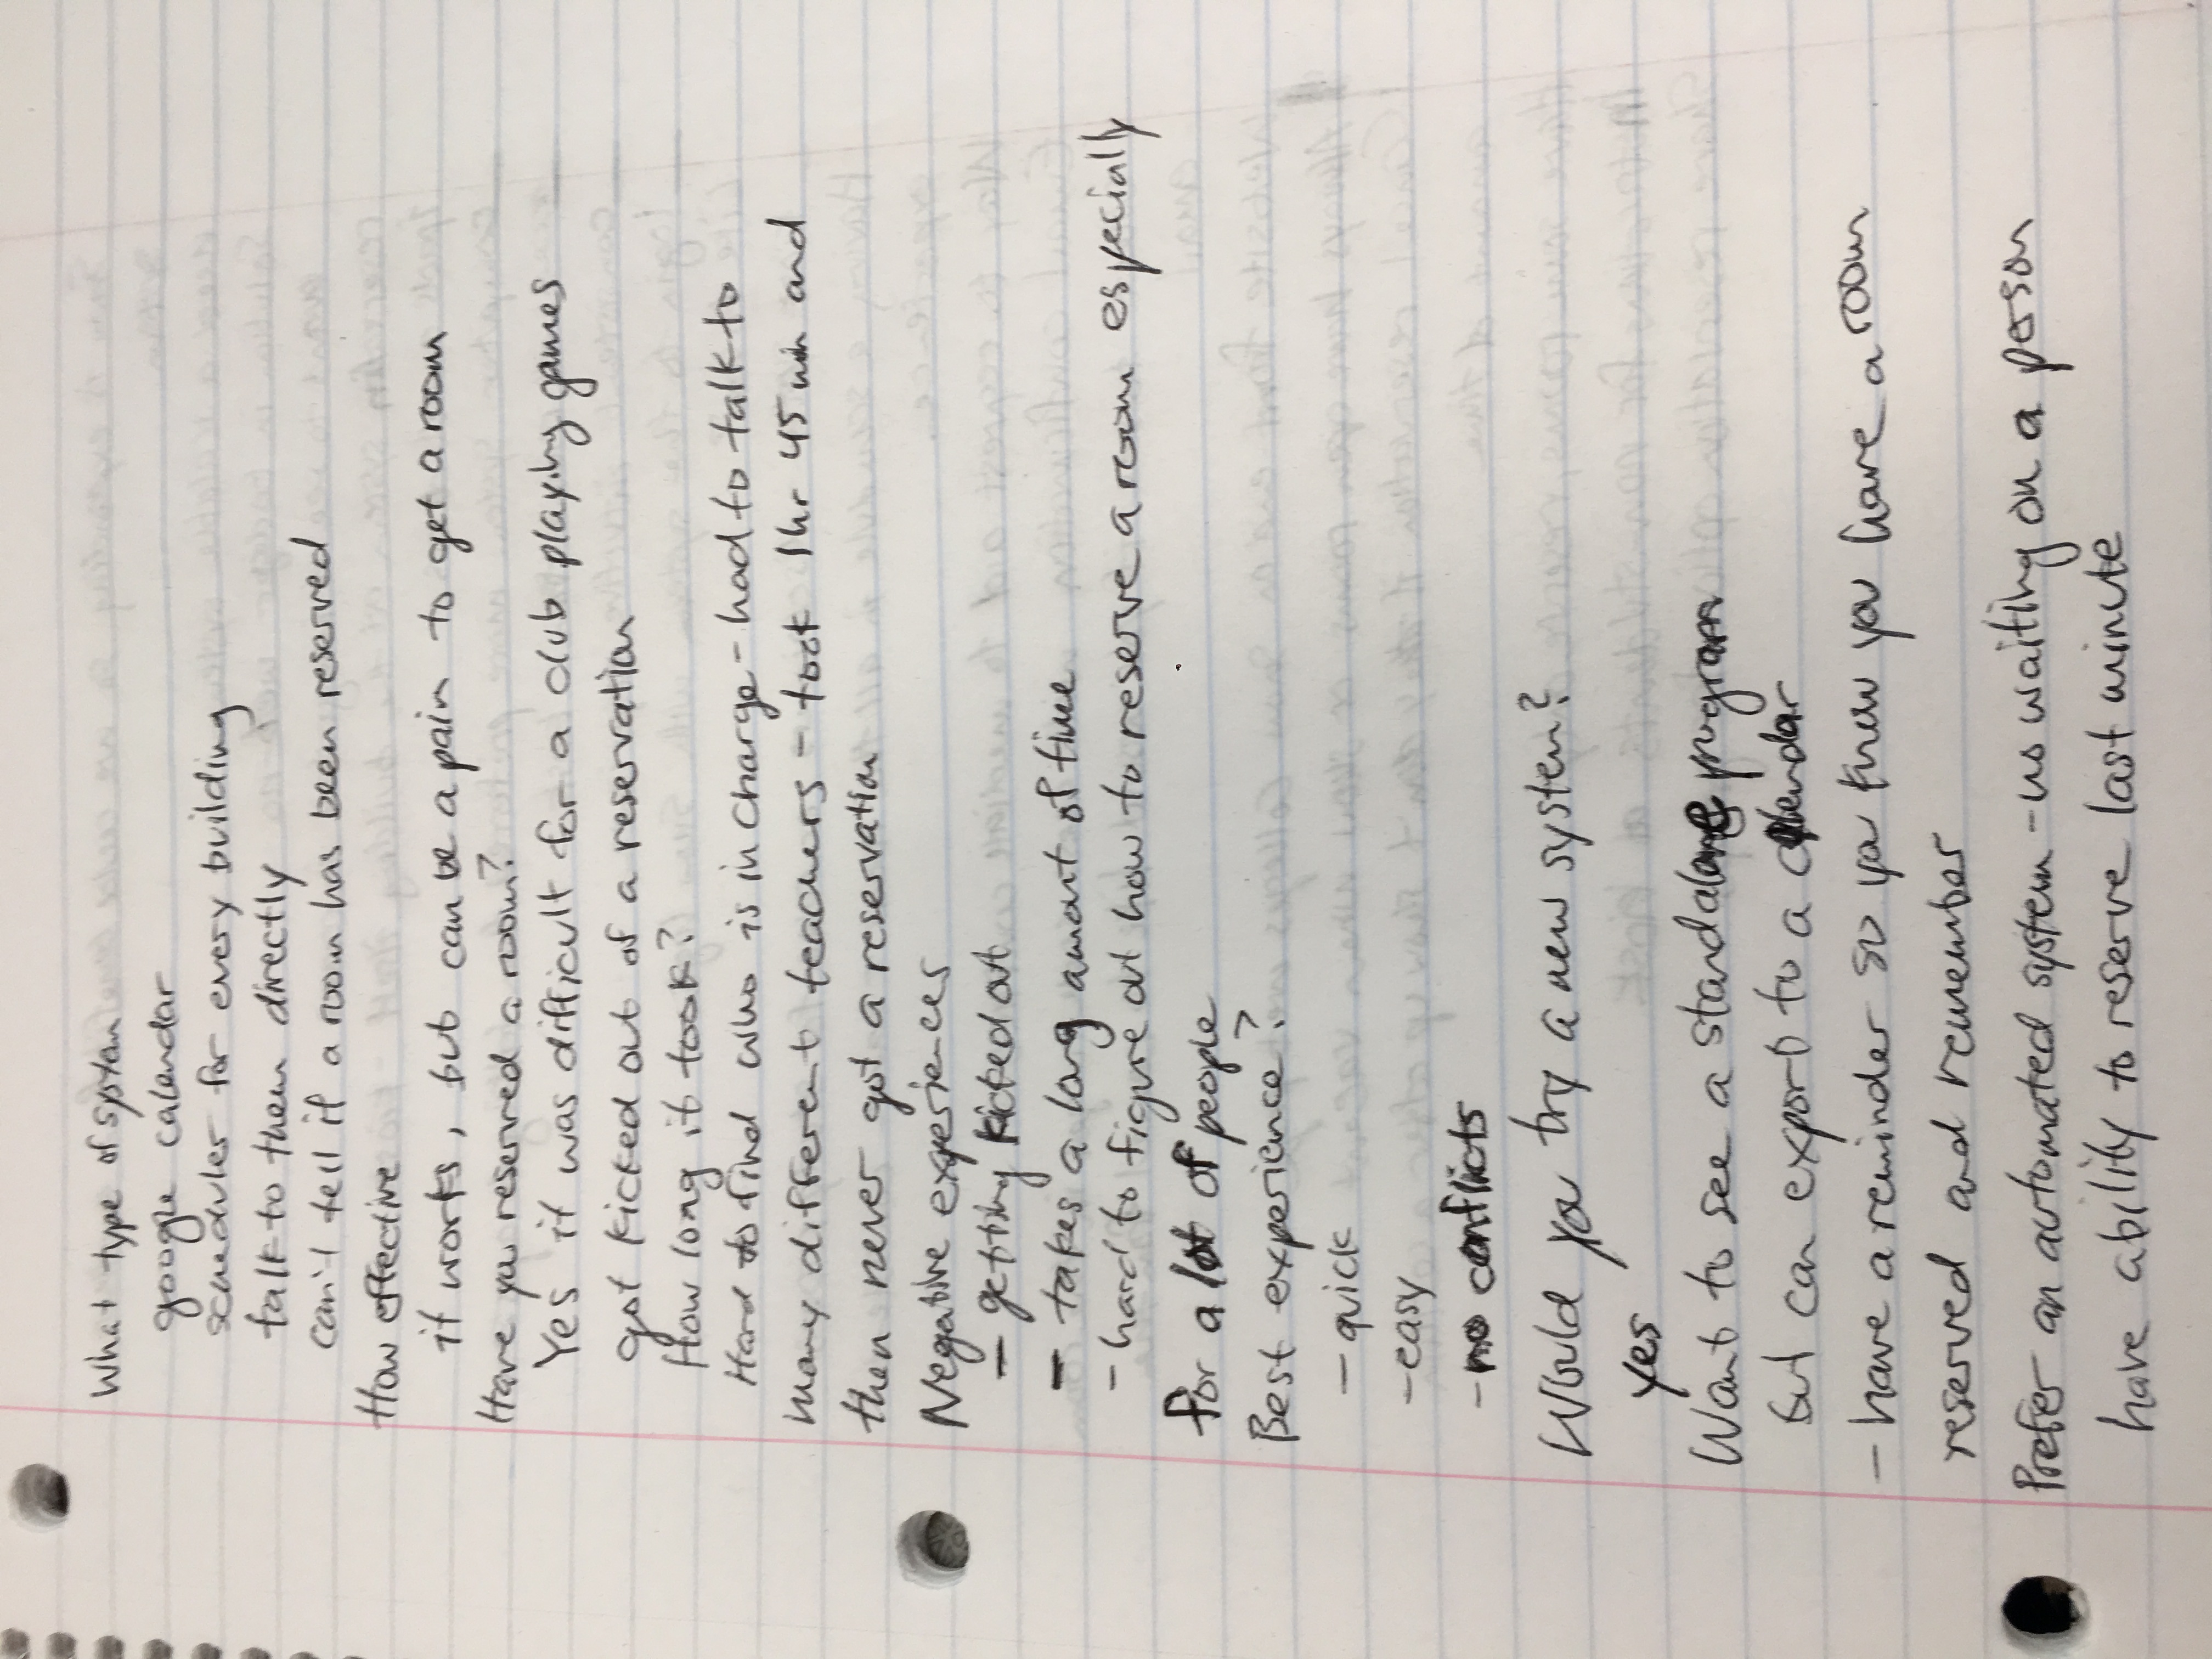 What type of system
google calendar
scheduler for every building
talk to them directly
can't tell if a room has been reserved
How effective
it works, but can be a pain to get a room
Have you reserved a room?
Yes it was difficult for a club playing games
got kicked out of a reservation
How long it took?
Hard to find who is in charge - had to talk to
many different teachers - took 1hr 45 min and
then never got a reservation
Negative experiences
- getting kicked out
- takes a long amount of time
- hard to figure out how to reserve a room especially
for a lot of people
Best experience?
- quick
- easy
- no conflicts
Would you try a new system?
yes
Want to see a standalone program
but can export to a calendar
- have a reminder so you know you have a room
reserved and remember
Prefer an automated system - no waiting on a person
have ability to reserve last minute